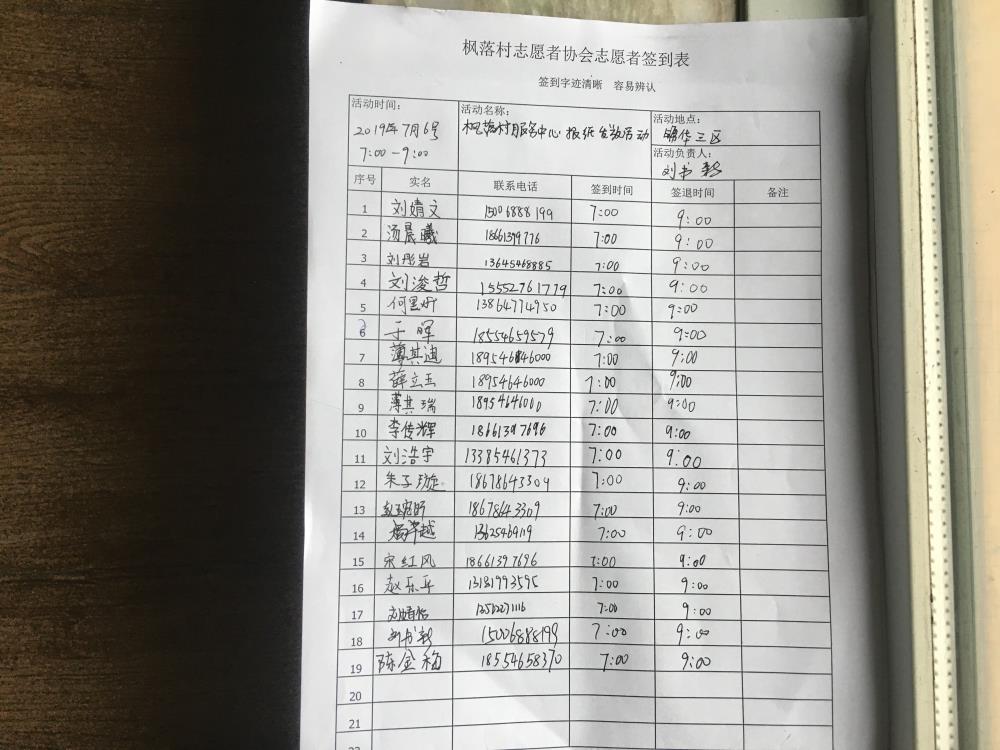 枫落村志愿者协会志愿者签到表
签到字迹清晰 容易辨认
活动时间: 2019年7月6号 7:00-9:00
活动名称: 枫落村服务中心报纸义卖活动
活动地点: 锦华三区
活动负责人: 刘书
序号 实名 联系电话 签到时间 签退时间 备注
1 刘婧文 15006888199 7:00 9:00
2 汤晨曦 18661399776 7:00 9:00
3 刘彤岩 13645468885 7:00 9:00
4 刘浚哲 15552761779 7:00 9:00
5 13864774950 7:00 9:00
6 于晖 18554659579 7:00 9:00
7 薄其迪 18954646000 7:00 9:00
8 薛立玉 18954646000 7:00 9:00
9 薄其瑞 18954646000 7:00 9:00
10 李传辉 18661397696 7:00 9:00
11 刘浩宇 13385461373 7:00 9:00
12 朱子璇 18678643309 7:00 9:00
13 18678643309 7:00 9:00
14 7:00 9:00
15 宋红风 18661397696 7:00 9:00
16 赵乐平 13181993595 7:00 9:00
17 7:00 9:00
18 15006888199 7:00 9:00
19 陈金梅 18554658370 7:00 9:00
20
21